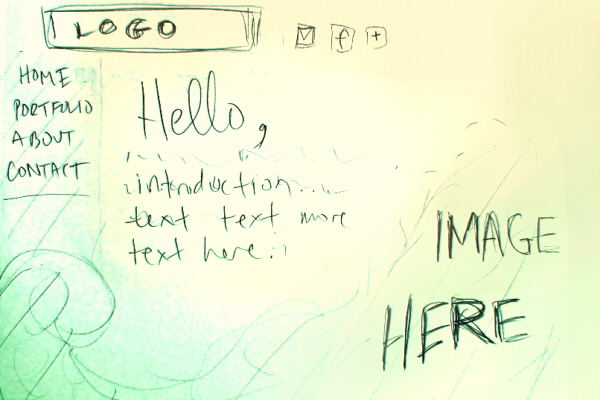 LOGO
f +
HOME
PORTFOLIO
ABOUT
CONTACT
Hello,
introduction...
text text more
text here..
IMAGE
HERE